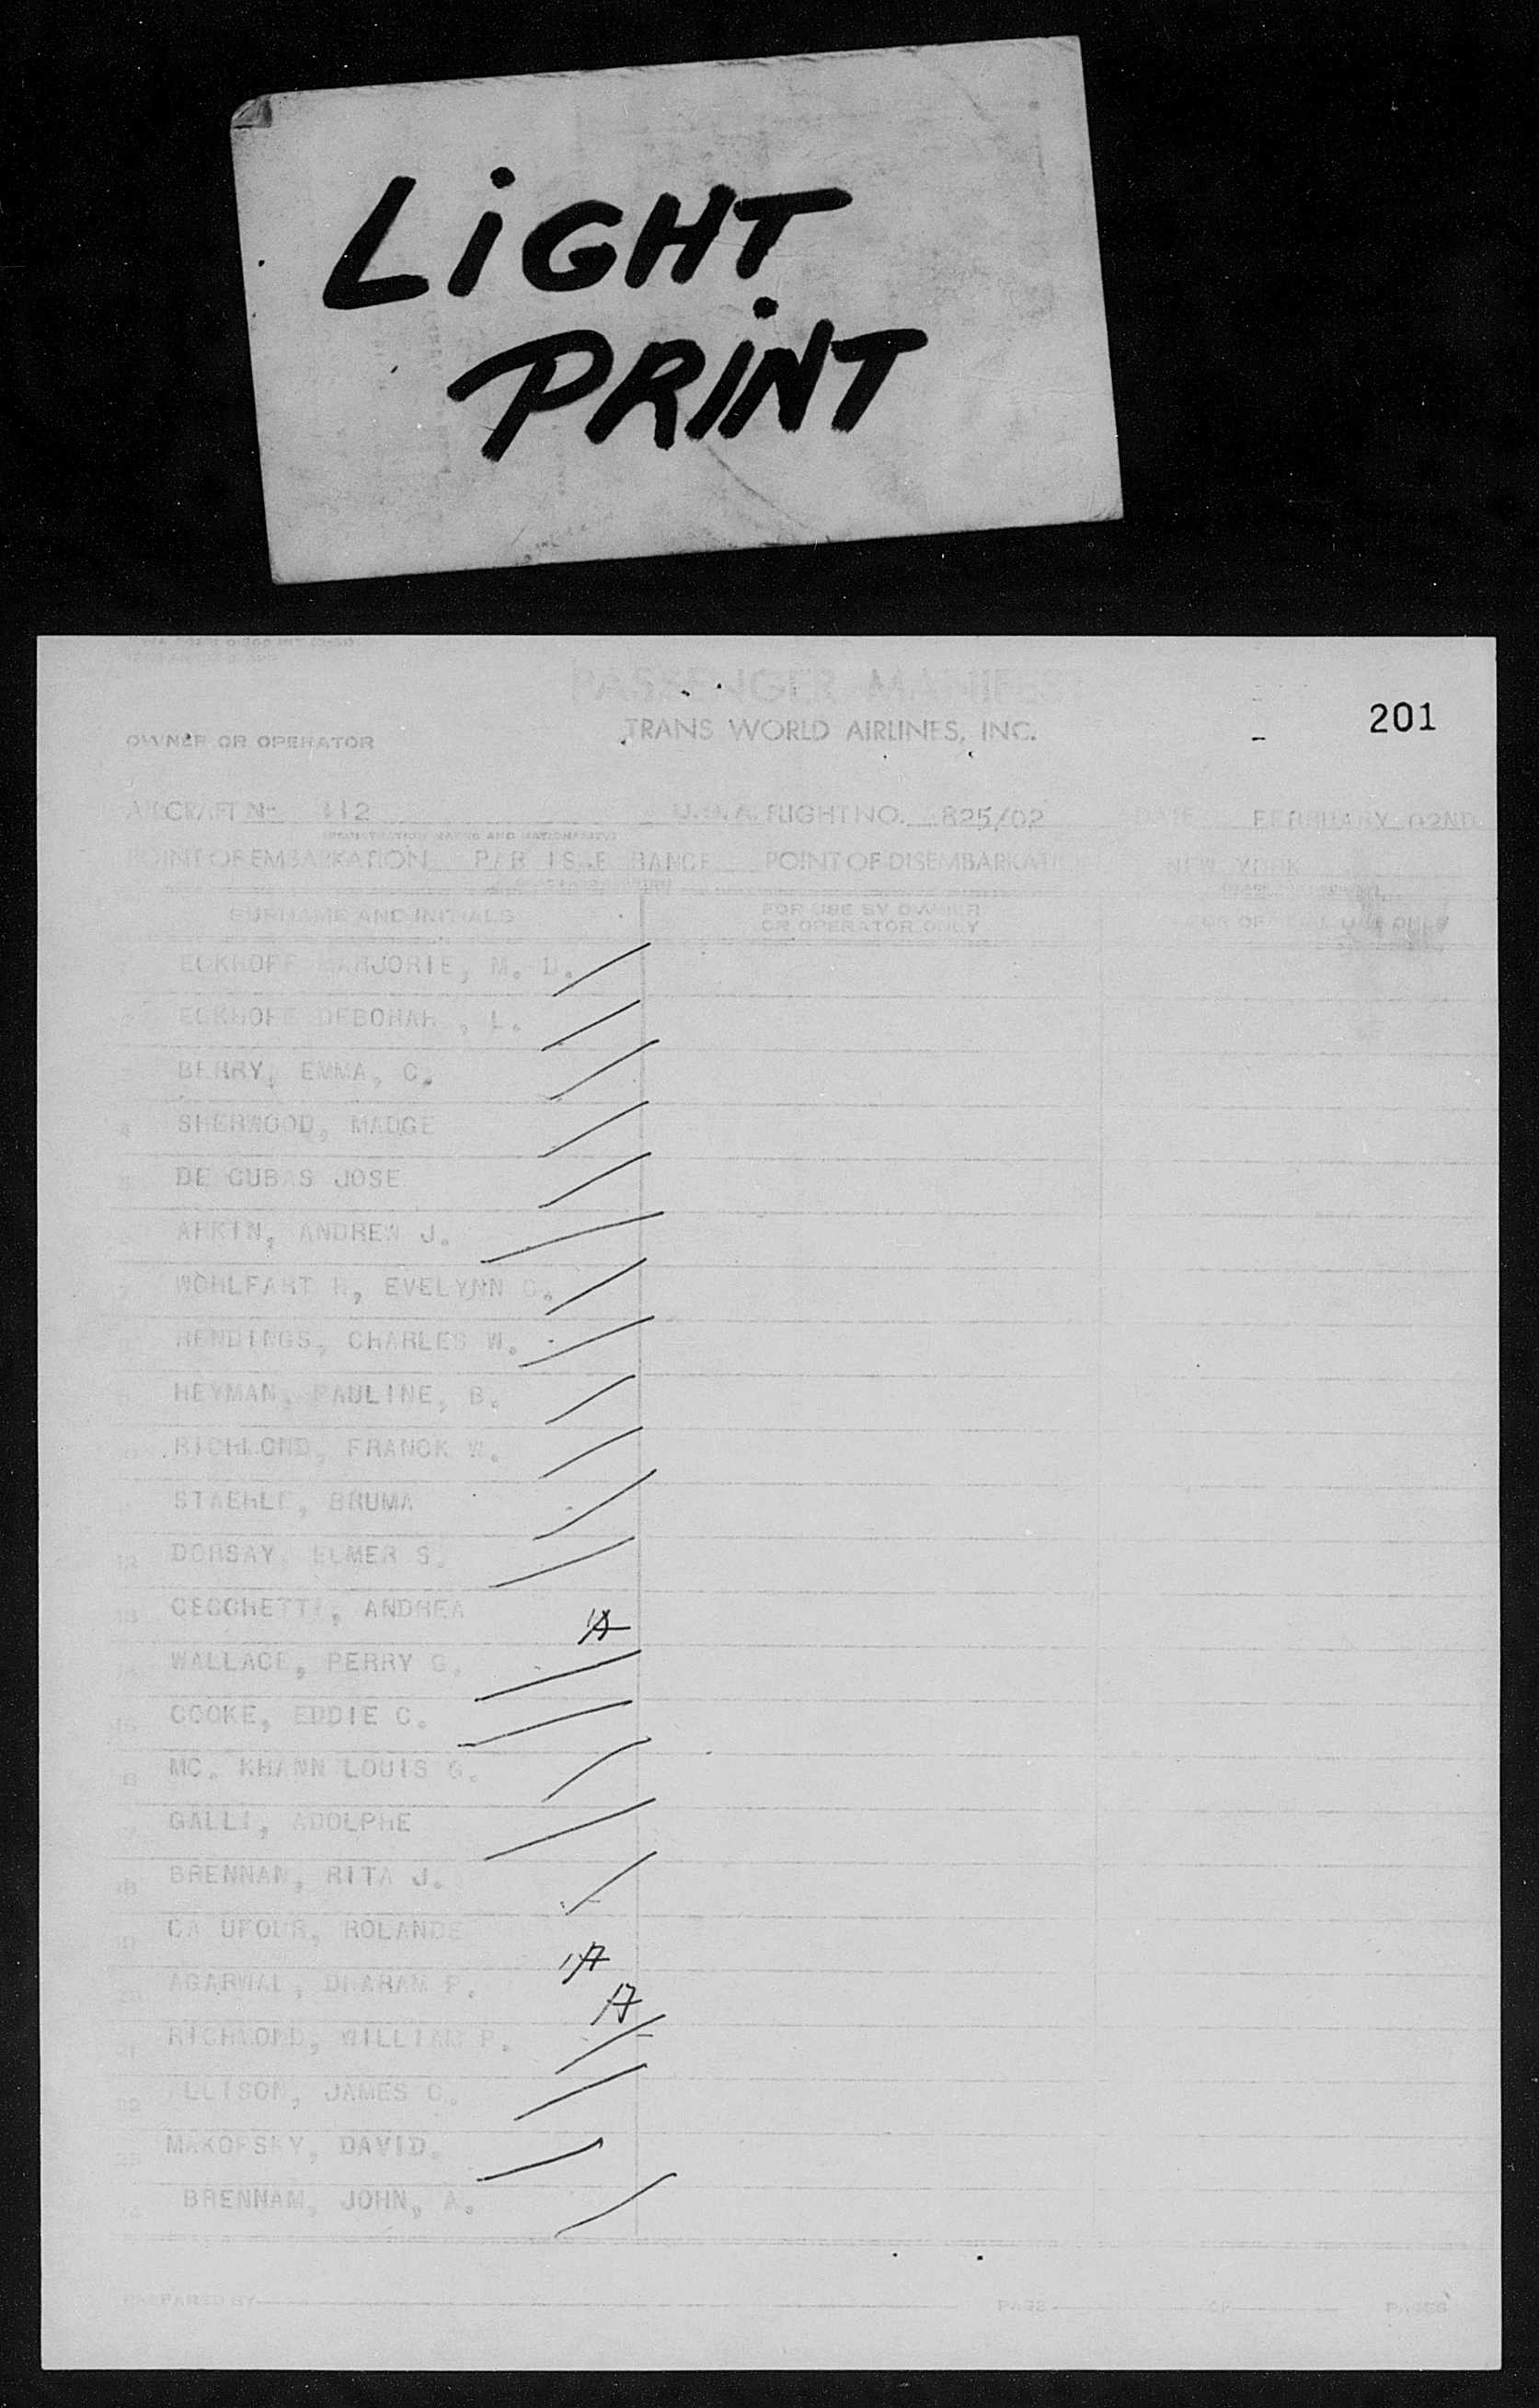 LiGHT
PRiNT
PASSENGER MANIFEST
201
TRANS WORLD AIRLINES, INC.
OWNER OR OPERATOR
AIRCRAFT No 112 FLIGHT NO. 825/02 DATE FEBRUARY 02ND
POINT OF EMBARKATION POINT OF DISEMBARKATION NEW YORK
SURNAME AND INITIALS FOR USE BY OWNER OR OPERATOR ONLY FOR OFFICIAL USE ONLY
ECKHOFF MARJORIE, M. D.
ECKHOFF DEBORAH , L.
BERRY, EMMA, C.
4 SHERWOOD, MADGE
5 DE CUBAS JOSE
ARKIN, ANDREW J.
7 WOHLFART H, EVELYNN
HENDINGS, CHARLES W.
HEYMAN, PAULINE, B.
RICHMOND, FRANCK W.
STAEHLE, BRUMA
12 DORSAY, ELMER S.
13 CECCHETTI, ANDREA
WALLACE, PERRY G.
COOKE, EDDIE C.
MC. KHANN LOUIS G.
GALLI, ADOLPHE
18 BRENNAN, RITA J.
ROLANDE
AGARWAL, DHARAM P.
21 RICHMOND, WILLIAM P.
22 ELLISON, JAMES C.
23 MAKOFSKY, DAVID.
BRENNAM, JOHN, A.
PREPARED BY PAGE OF PAGES